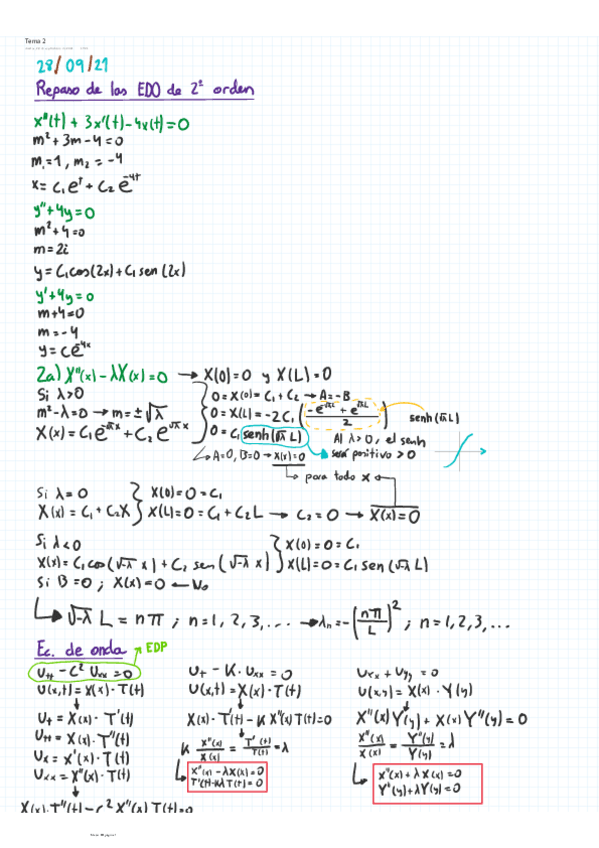 Tema 2
28/09/21
Repaso de las EDO de 2º orden
x''(t) + 3x'(t) - 4x(t) = 0
m² + 3m - 4 = 0
m₁ = 1, m₂ = -4
x = C₁e^t + C₂e^-4t
y'' + 4y = 0
m² + 4 = 0
m = 2i
y = C₁cos(2x) + C₁sen(2x)
y' + 4y = 0
m + 4 = 0
m = -4
y = Ce^-4x
2a) X''(x) - λX(x) = 0 → X(0) = 0 y X(L) = 0
Si λ > 0
m² - λ = 0 → m = ±√λ
X(x) = C₁e^-√λx + C₂e^√λx
0 = X(0) = C₁ + C₂ → A = -B
0 = X(L) = -2C₁ (-e^-√λL + e^√λL / 2)
senh(√λ L)
0 = C₁ senh(√λ L)
Al λ > 0, el senh
será positivo > 0
A = 0, B = 0 → X(x) = 0
→ para todo x
Si λ = 0
X(x) = C₁ + C₂X
X(0) = 0 = C₁
X(L) = 0 = C₁ + C₂L → C₂ = 0 → X(x) = 0
Si λ < 0
X(x) = C₁cos(√-λ x) + C₂ sen(√-λ x)
X(0) = 0 = C₁
X(L) = 0 = C₁ sen(√-λ L)
Si B = 0; X(x) = 0 ← No
√-λ L = nπ; n = 1, 2, 3, ... → λn = -(nπ/L)²; n = 1, 2, 3, ...
Ec. de onda → EDP
Utt - C² Uxx = 0
U(x,t) = X(x) · T(t)
Ut = X(x) · T'(t)
Utt = X(x) · T''(t)
Ux = X'(x) · T(t)
Uxx = X''(x) · T(t)
X(x) · T''(t) - c² X''(x) T(t) = 0
Ut - K · Uxx = 0
U(x,t) = X(x) · T(t)
X(x) · T'(t) - K X''(x) T(t) = 0
K X''(x)/X(x) = T'(t)/T(t) = λ
X''(x) - λX(x) = 0
T'(t) - Kλ T(t) = 0
Uxx + Uyy = 0
U(x,y) = X(x) · Y(y)
X''(x) Y(y) + X(x) Y''(y) = 0
X''(x)/X(x) = Y''(y)/Y(y) = λ
X''(x) + λX(x) = 0
Y''(y) + λY(y) = 0